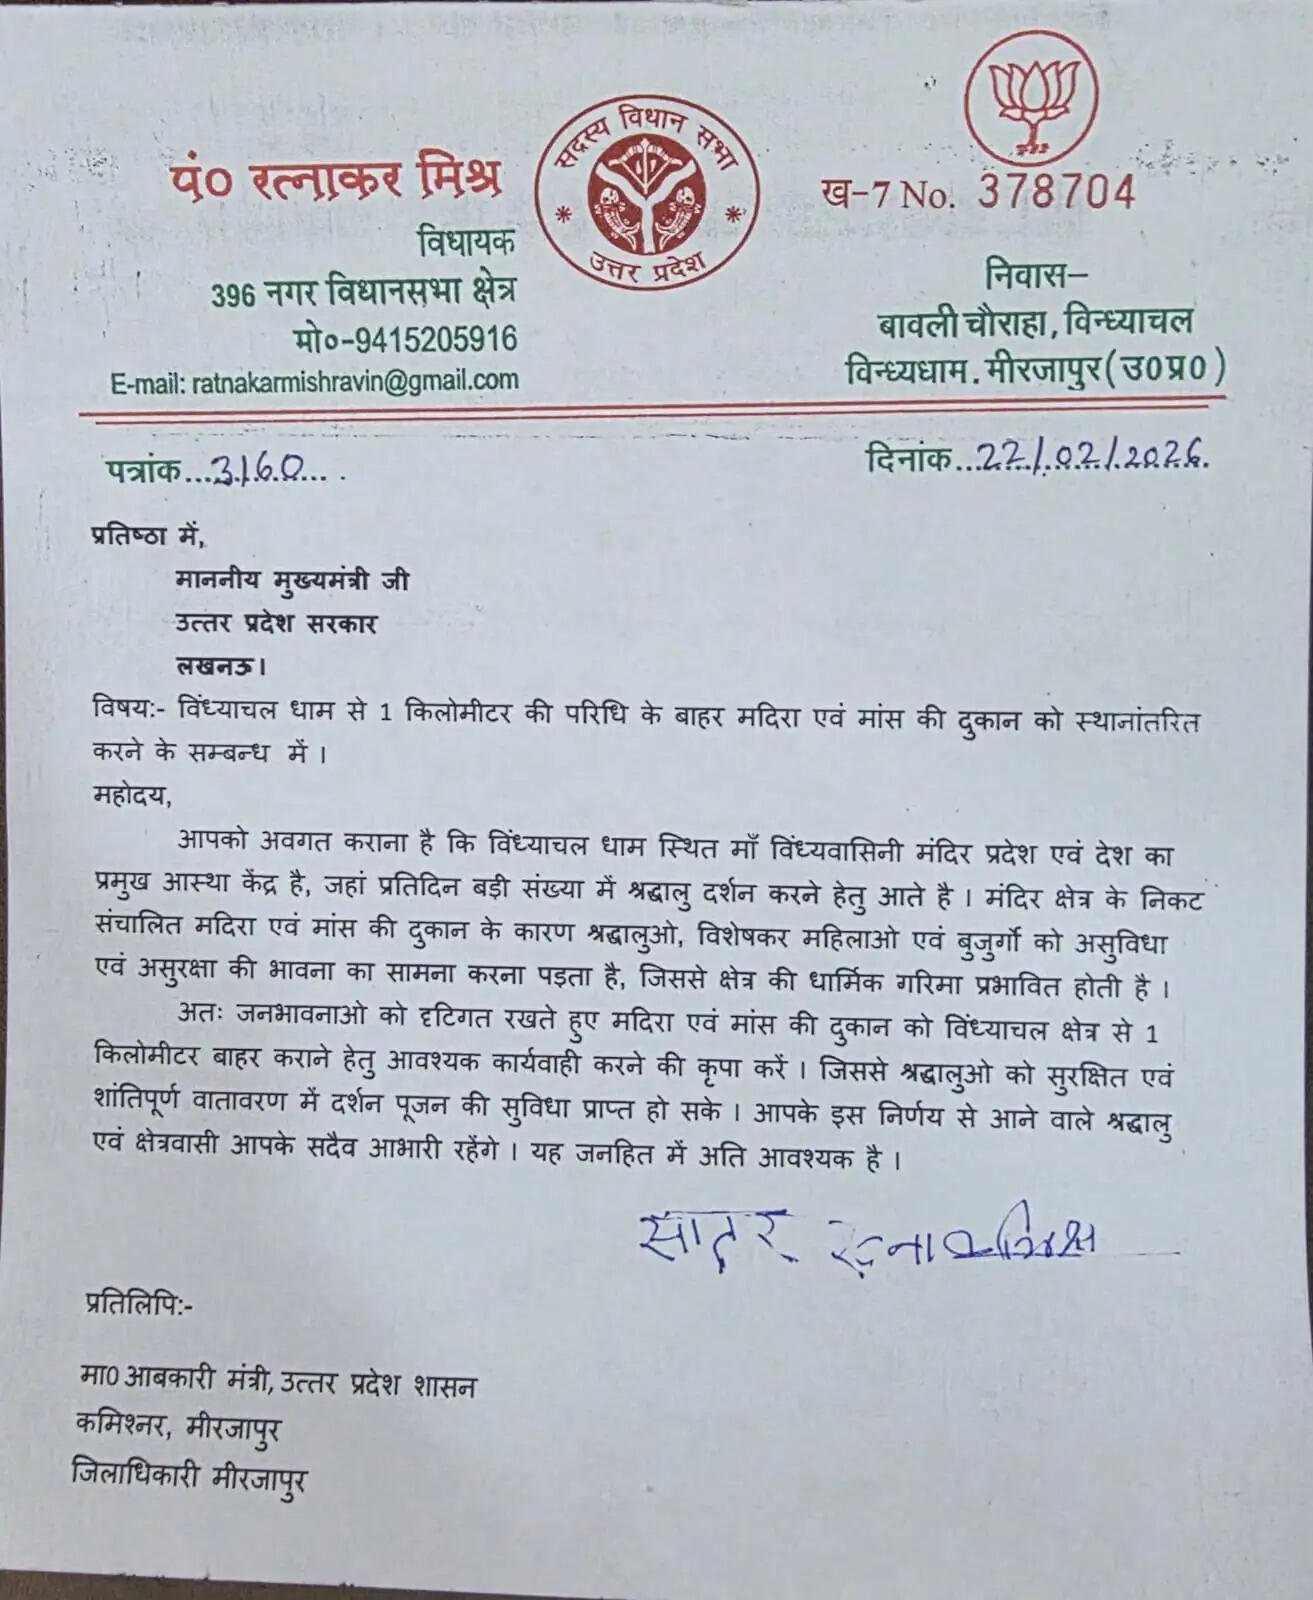 पं० रत्नाकर मिश्र
विधायक
396 नगर विधानसभा क्षेत्र
मो०-9415205916
E-mail: ratnakarmishravin@gmail.com
सदस्य विधान सभा
उत्तर प्रदेश
ख-7 No. 378704
निवास–
बावली चौराहा, विन्ध्याचल
विन्ध्यधाम. मीरजापुर (उ0प्र0)
पत्रांक...3160....
दिनांक...22/02/2026.
प्रतिष्ठा में,
माननीय मुख्यमंत्री जी
उत्तर प्रदेश सरकार
लखनऊ।
विषय:- विंध्याचल धाम से 1 किलोमीटर की परिधि के बाहर मदिरा एवं मांस की दुकान को स्थानांतरित
करने के सम्बन्ध में ।
महोदय,
आपको अवगत कराना है कि विंध्याचल धाम स्थित माँ विंध्यवासिनी मंदिर प्रदेश एवं देश का
प्रमुख आस्था केंद्र है, जहां प्रतिदिन बड़ी संख्या में श्रद्धालु दर्शन करने हेतु आते है । मंदिर क्षेत्र के निकट
संचालित मदिरा एवं मांस की दुकान के कारण श्रद्धालुओ, विशेषकर महिलाओ एवं बुजुर्गो को असुविधा
एवं असुरक्षा की भावना का सामना करना पड़ता है, जिससे क्षेत्र की धार्मिक गरिमा प्रभावित होती है ।
अतः जनभावनाओ को दृटिगत रखते हुए मदिरा एवं मांस की दुकान को विंध्याचल क्षेत्र से 1
किलोमीटर बाहर कराने हेतु आवश्यक कार्यवाही करने की कृपा करें । जिससे श्रद्धालुओ को सुरक्षित एवं
शांतिपूर्ण वातावरण में दर्शन पूजन की सुविधा प्राप्त हो सके । आपके इस निर्णय से आने वाले श्रद्धालु
एवं क्षेत्रवासी आपके सदैव आभारी रहेंगे । यह जनहित में अति आवश्यक है ।
सादर
प्रतिलिपि:-
मा0 आबकारी मंत्री, उत्तर प्रदेश शासन
कमिश्नर, मीरजापुर
जिलाधिकारी मीरजापुर